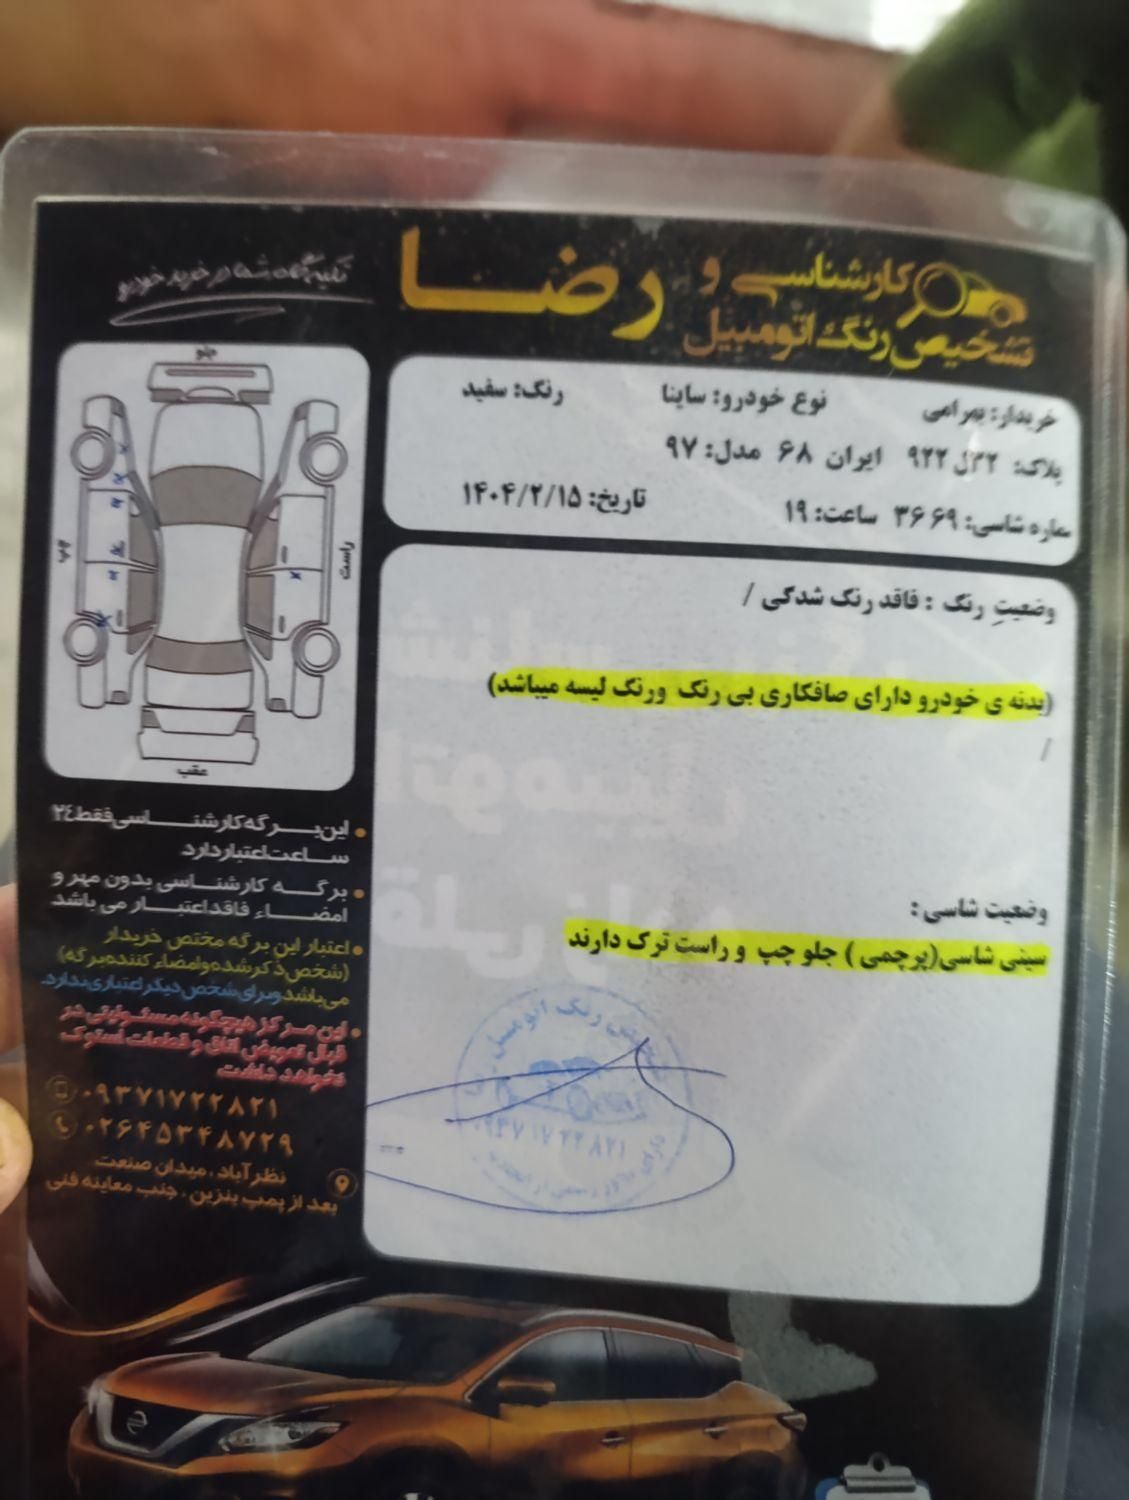 کارشناسی و
تشخیص رنگ اتومبیل
رضا
تکیه‌گاه شما در خرید خودرو
خریدار: بهرامی نوع خودرو: ساینا رنگ: سفید
پلاک: ۳۲ل۹۲۲ ایران ۶۸ مدل: ۹۷
شماره شاسی: ۳۶۶۹ ساعت: ۱۹ تاریخ: ۱۴۰۴/۲/۱۵
جلو
چپ
راست
عقب
وضعیتِ رنگ : فاقد رنگ شدگی /
(بدنه ی خودرو دارای صافکاری بی رنگ ورنگ لیسه میباشد)
/
وضعیت شاسی :
سینی شاسی(پرچمی ) جلو چپ و راست ترک دارند
این برگه کارشناسی فقط ۲٤
ساعت اعتبار دارد
برگه کارشناسی بدون مهر و
امضاء فاقد اعتبار می باشد
اعتبار این برگه مختص خریدار
(شخص ذکر شده و امضاء کننده برگه)
می‌باشد و برای شخص دیگر اعتباری ندارد.
این مرکز هیچگونه مسئولیتی در
قبال تعویض اتاق و قطعات استوک
نخواهد داشت
۰۹۳۷۱۷۲۲۸۲۱
۰۲۶۴۵۳۴۸۷۲۹
نظرآباد ، میدان صنعت
بعد از پمپ بنزین ، جنب معاینه فنی
رنگ اتومبیل
۰۹۳۷۱۷۲۲۸۲۱